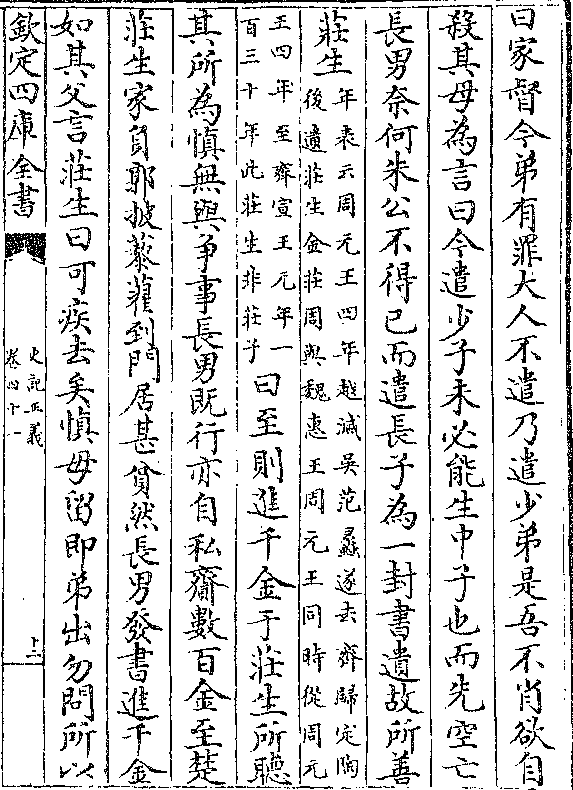 曰家督今弟有罪大人不遣乃遣少弟是吾不肖欲自
殺其母為言曰今遣少子未必能生中子也而先空亡
長男奈何朱公不得已而遣長子為一封書遺故所善
莊生
年表云周元王四年越滅吳范蠡遂去齊歸定陶
後遺莊生金莊周與魏惠王周元王同時從周元
王四年至齊宣王元年一
百三十年此莊生非莊子
曰至則進千金于莊生所聽
其所為慎無與爭事長男既行亦自私齎數百金至楚
莊生家負郭披藜藋到門居甚貧然長男發書進千金
如其父言莊生曰可疾去矣慎毋留即弟出勿問所以
欽定四庫全書
史記正義
卷四十一
十二